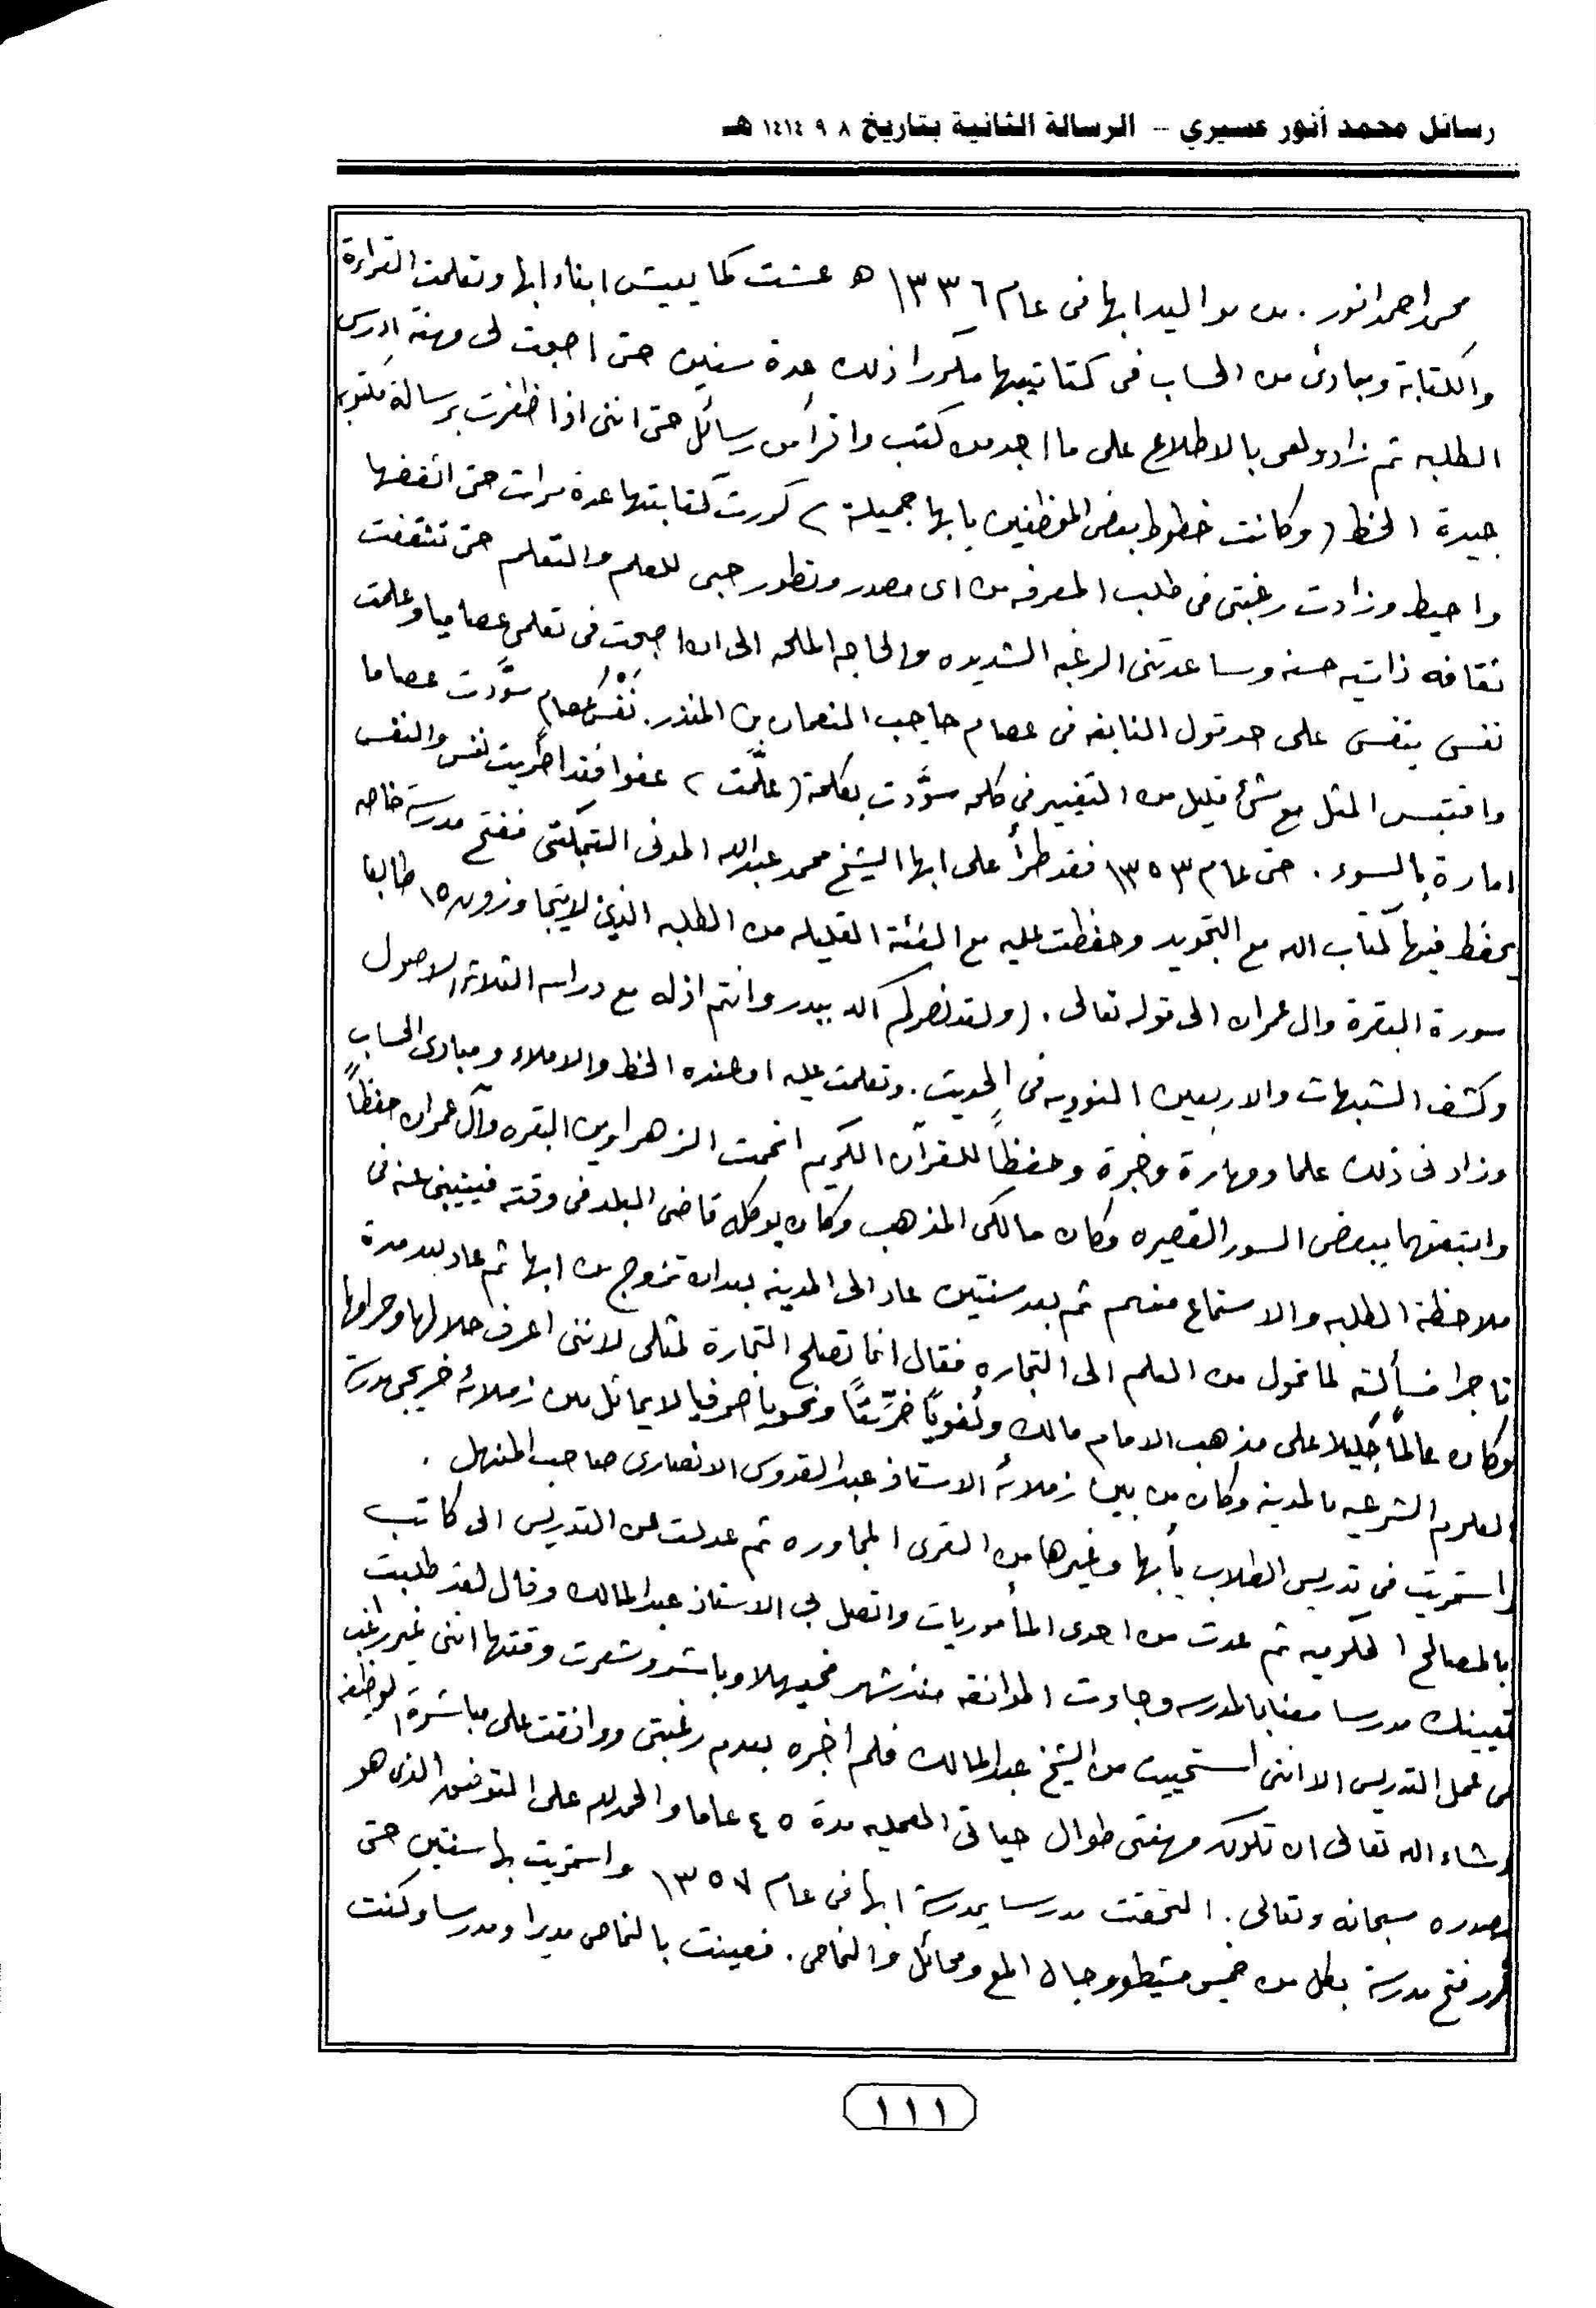 رسائل محمد أنور عسيري - الرسالة الثانية بتاريخ ٨ ٩ ١٤١٤ هـ
محمد احمد انور . من مواليد ابها فى عام ١٣٣٦ ه عشت كما يعيش ابناء ابها وتعلمت القراءة
والكتابة ومبادئ من الحساب فى كتاتيبها مكررا ذلك عدة سنين حتى اصبحت لى مهنة ادرس
الطلبه ثم زاد ولعى بالاطلاع على ما اجد من كتب واقرأ من رسائل حتى اننى اذا ظفرت برسالة مكتوبه
جيدة الخط ( وكانت خطوط بعض الموظفين بابها جميلة ) كررت كتابتها عدة مرات حتى اتقنها
واحيط وزادت رغبتى فى طلب المعرفه من اى مصدر وتطور حبى للعلم والتعلم حتى تثقفت
ثقافه ذاتيه حسنه وساعدتنى الرغبه الشديده والحاجه الملحه الى ان اصبحت فى تعلمى عصاميا وعلمت
نفسى بنفسى على حد قول النابغه فى عصام حاجب النعمان بن المنذر . نَفْسُ عصام سوَّدت عصاما
واقتبس المثل مع شئ قليل من التغيير في كلمه سوَّدت بكلمة ( علَّمت ) عفوا فقد اطريت نفسى والنفس
امارة بالسوء . حتى عام ١٣٥٣ فقد طرأ على ابها الشيخ محمد عبدالله المدنى التمبكتى ففتح مدرسة خاصه
يحفظ فيها كتاب الله مع التجويد وحفظت عليه مع الفئة القليله من الطلبه الذين لايتجاوزون ١٥ طالبا
سورة البقرة وال عمران الى قوله تعالى . ( ولقد نصركم الله ببدر وانتم اذله مع دراسه الثلاثة الاصول
وكشف الشبهات والاربعين النوويه فى الحديث . وتعلمت عليه الخط والاملاء ومبادى الحساب
وزادنى ذلك علما ومهارة وخبرة وحفظاً للقرآن الكريم اتممت الزهراوين البقره وآل عمران حفظاً
واتبعتهما ببعض السور القصيره وكان مالكى المذهب وكان يوكله قاضى البلد فى وقته فينيبنى عنه فى
ملاحظة الطلبه والاستماع منهم ثم بعد سنتين عاد الى المدينه بعد ان تزوج من ابها ثم عاد بعد مدة
تاجرا فسألته لما تحول من العلم الى التجاره فقال انما تصلح التجارة لمثلى لاننى اعرف حلالها وحرامها
وكان عالماً جليلا على مذهب الامام مالك ولُغوياً ونحويا صرفيا لا يماثل من زملائه خريجى مدرسة
العلوم الشرعيه بالمدينه وكان من بين زملائه الاستاذ عبدالقدوس الانصارى صاحب المنهل .
استمريت فى تدريس الطلاب بأبها وغيرها من القرى المجاوره ثم عدلت عن التدريس الى كاتب
بالمصالح الحكوميه ثم عدت من احدى المأموريات واتصل بي الاستاذ عبدالمالك وقال لقد طلبت
تعيينك مدرسا معنا بالمدرسه وجاءت الموافقه منذ شهر فحيهلا وباشر وشعرت وقتها اننى غير راغب
فى عمل التدريس الا اننى استحييت من الشيخ عبدالمالك فلم أخبره بعدم رغبتى ووافقت على مباشرة الوظيفه
وشاء الله تعالى ان تكون مهنتى طوال حياتى العمليه مدة ٤٥ عاما والحمد لله على التوفيق الذى هو
مصدره سبحانه وتعالى . التحقت مدرسا بمدرسة ابها فى عام ١٣٥٧ واستمريت بها سنتين حتى
تقرر فتح مدرسة بكل من خميس مشيط ورجال المع ومحائل والنماص . فعينت بالنماص مديرا ومدرسا وكنت
١١١